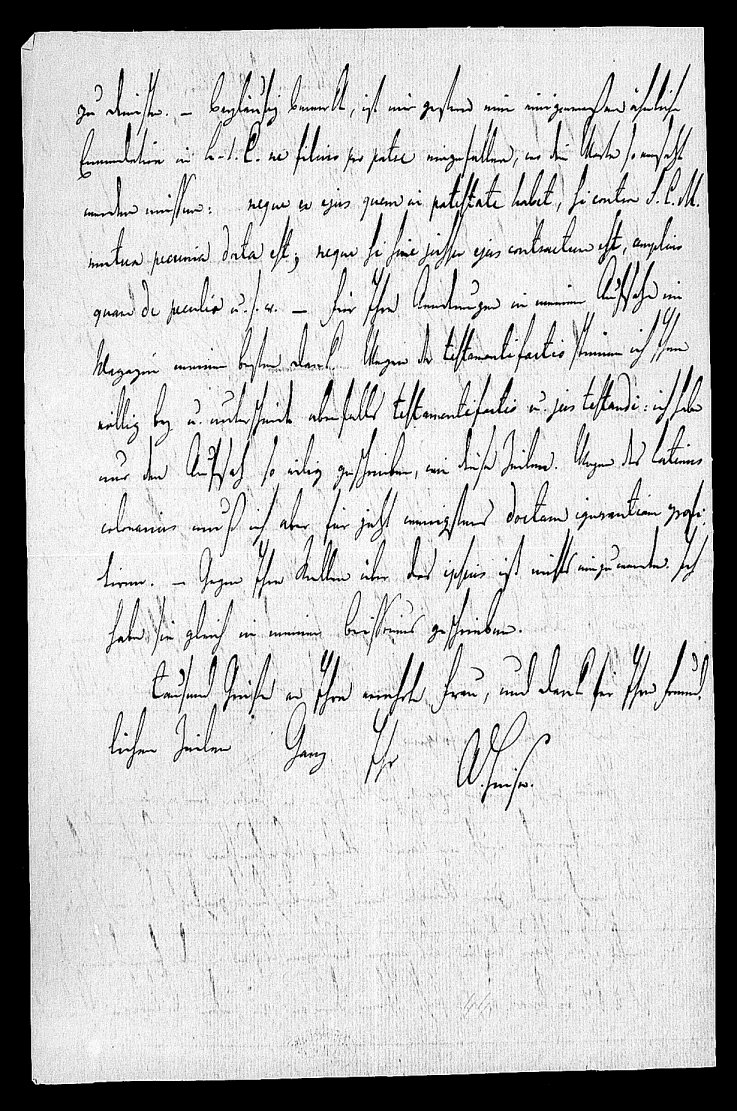 zu – beyläufig bemerkt, ist mir gestern eine einigermaßen ähnliche
Emendation in L. 1. C. ne filius pro patre eingefallen, wo die Worte so versetzt
werden müssen: neque eo ejus quem in potestate habet, si contra S. C. M.
mutua pecunia data est; neque si sine jussu ejus contractum est, amplius
quam de peculio u. s. w. – Für Ihre in meinem Aufsatze im
Magazin meinen besten Dank. Wegen der testamentifactio stimme ich Ihnen
völlig bey u. unterscheide ebenfalls testamentifactio u. jus testandi: ich habe
nur den Aufsatz so eilig geschrieben, wie diese Zeilen. Wegen des Latinus
colonarius muß ich aber für jetzt wenigstens doctam ignorantiam profi-
tiren. – Gegen Ihre Stellen über das ipsius ist nichts einzuwenden. Ich
habe sie gleich in meinen Brissonius geschrieben.
Tausend Grüße an Ihre verehrte Frau, und Dank für Ihre freund-
lichen Zeilen Ganz Ihr